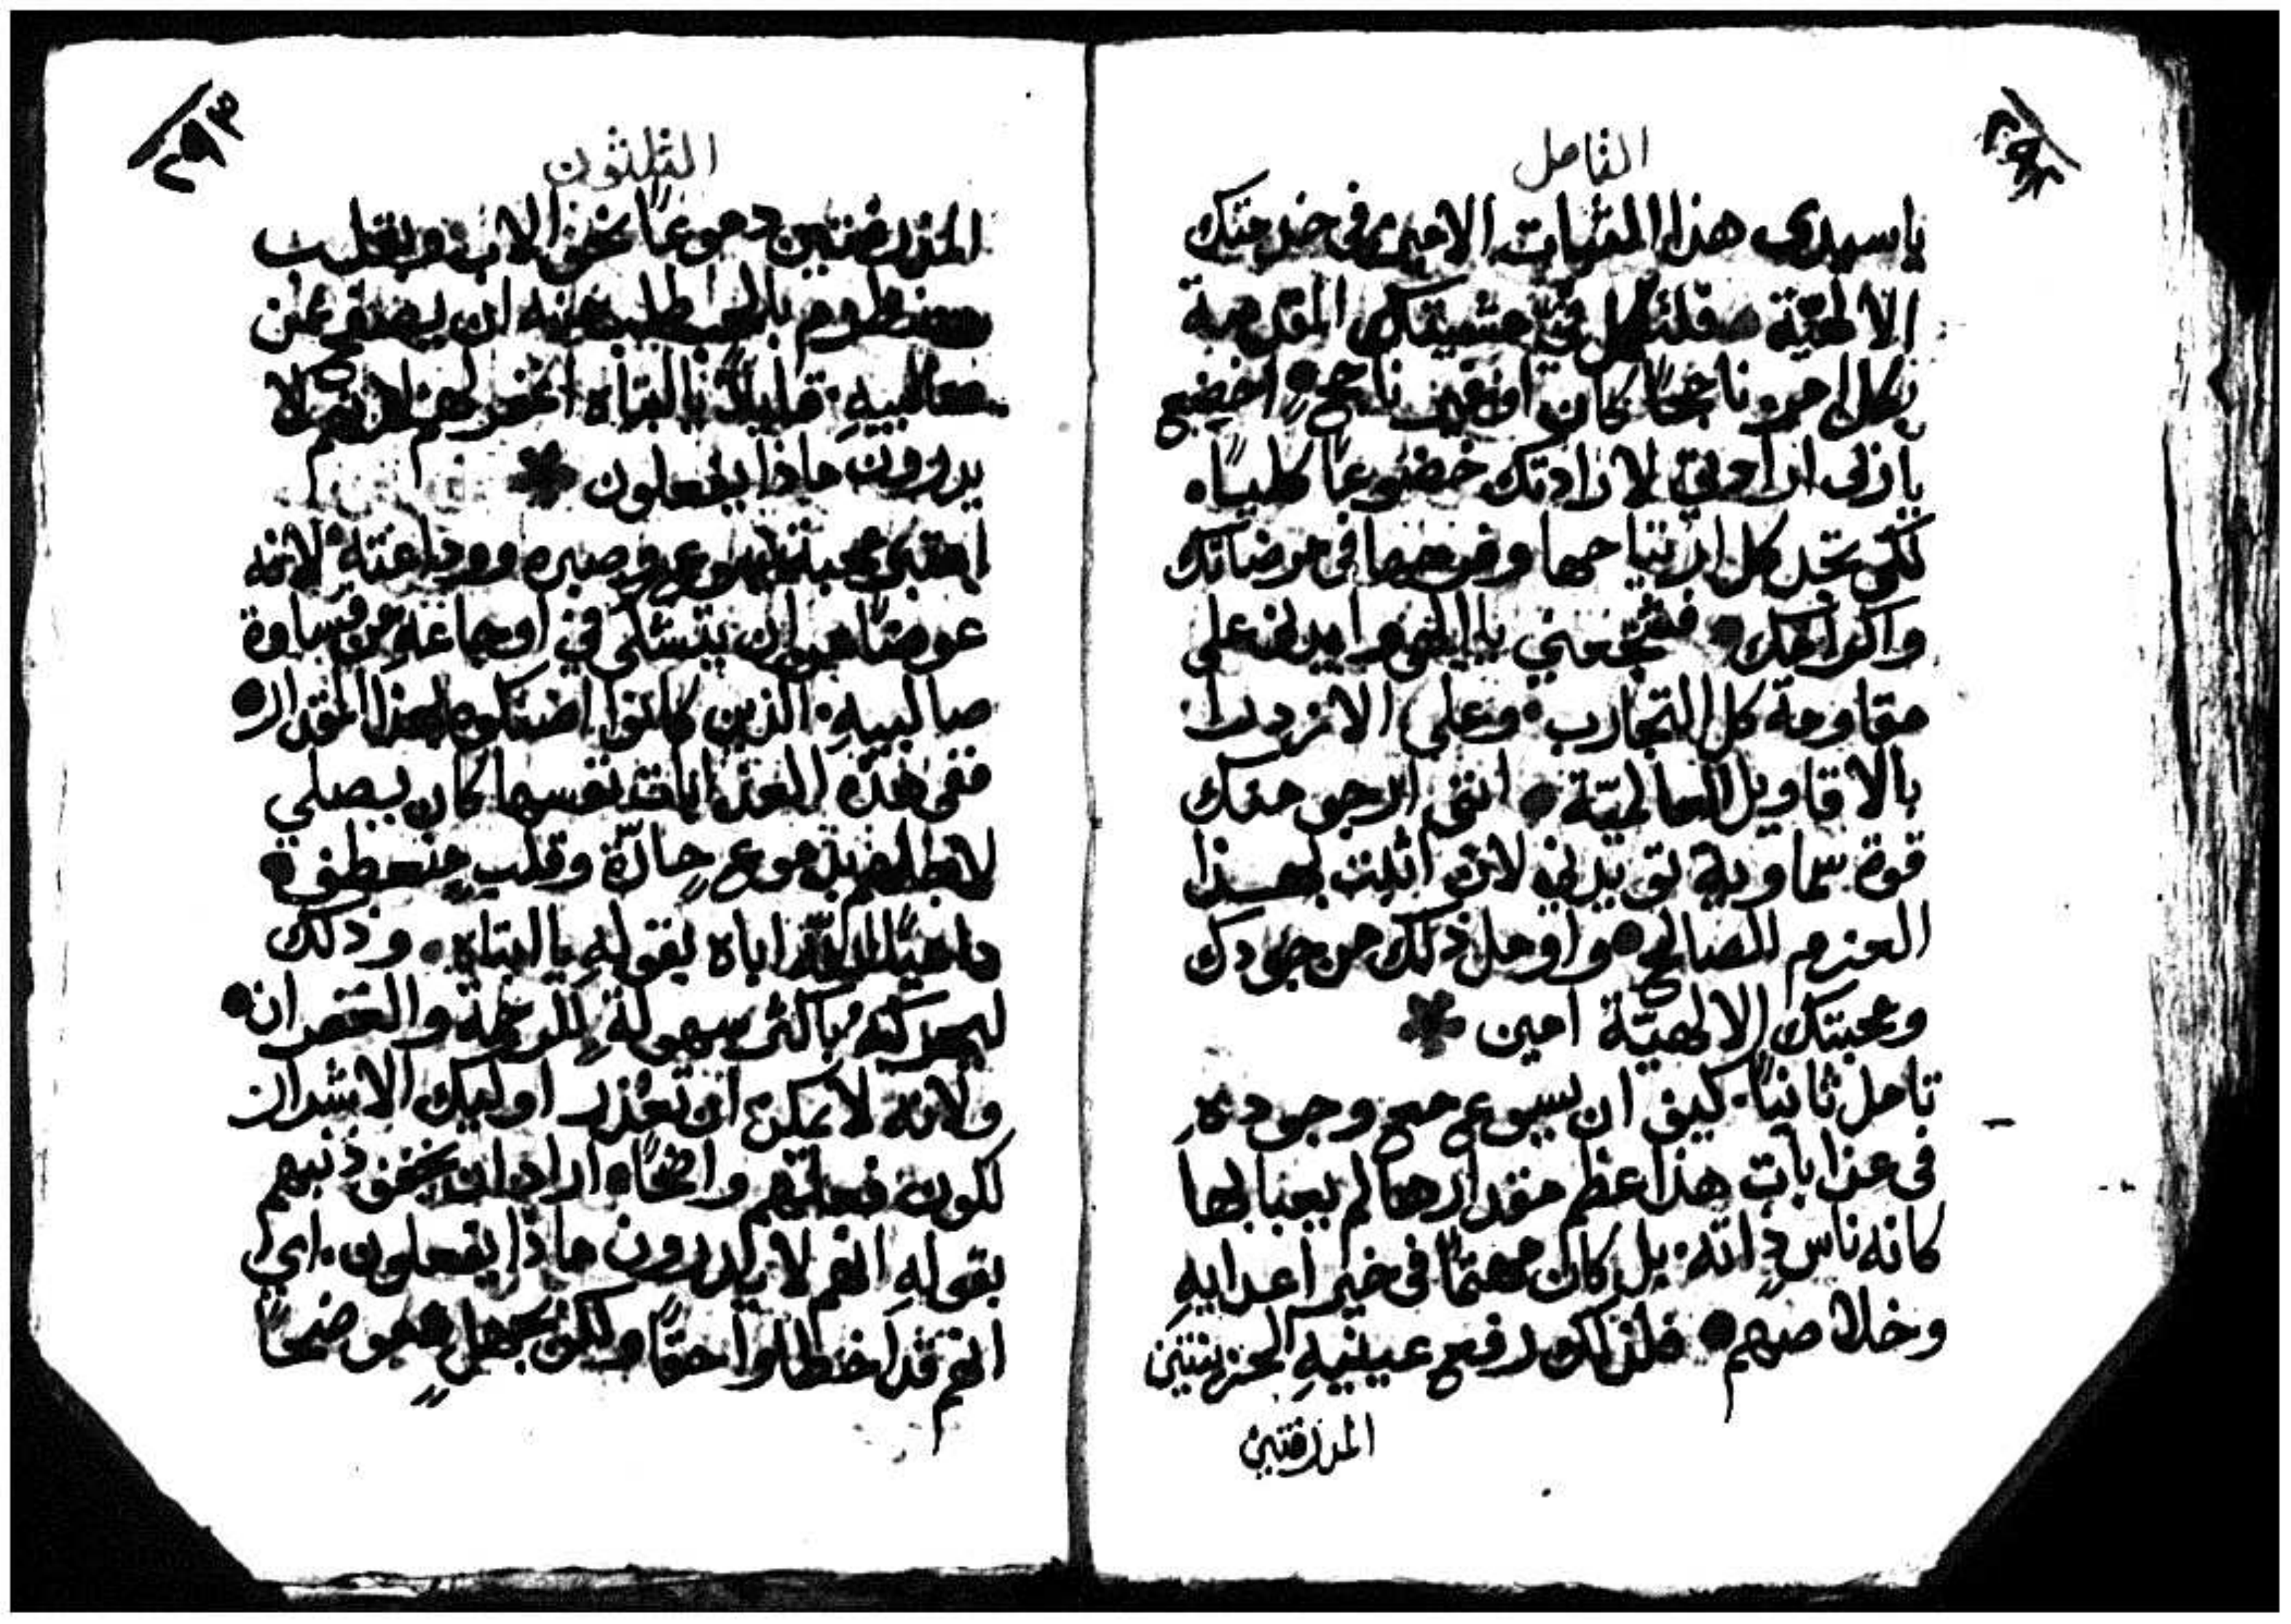 التامل
يا سيدي هذا الثبات الاميري في خدمتك
الالهيّة فلتكمل فيّ مشيتك المقدسة
بكل امر ناجحًا كان او غير ناجح اخضع
يا ربي ارادتي لارادتك خضوعًا كليًا
لكي تجد كل ارتياحها وفرحها في مرضاتك
واكرامك فشجعني يا الهي وايدني على
مقاومة كل التجارب وعلى الازدرا
بالاقاويل العالميّة انني ارجو منك
قوة سماوية تؤيدني لان اثبت بهذا
العزم الصالح واومل ذلك من جودك
ومحبتك الالهيّة امين
تامل ثانيًا كيف ان يسوع مع وجوده
في عذابات هذا عظم مقدارها لم يعبا بها
كانه ناسٍ ذاته بل كان مهتمًا في خير اعدايهِ
وخلاصهم فلذلك رفع عينيهِ الحزينتين
المذرفتين
الثلثون
المذرفتين دموعًا نحو الاب وبقلب
بالحب طلب منه ان يصفح عن
صالبيهِ قايلًا يا ابتاه اغفر لهم لانهم لا
يدرون ماذا يفعلون
محبة يسوع وصبره ووداعته لانه
عوضًا من ان يتشكى في اوجاعهِ من قساوة
صالبيهِ الذين كانوا اضنكوه بهذا المقدار
ففي هذه العذابات نفسها كان يصلي
لاجلهم بدموعٍ حارّة وقلبٍ منعطف
داعيًا الله اباه بقولهِ يا ابتاه وذلك
ليحركه باكثر سهولةٍ للرحمة والغفران
ولانه لا يمكن ان تعذر اوليك الاشرار
لكون فعلتهم واضحًا اراد ان يخفف ذنبهم
بقولهِ انهم لا يدرون ماذا يفعلون اي
انهم قد اخطاوا حقًا ولكن بجهلٍ فعوضًا